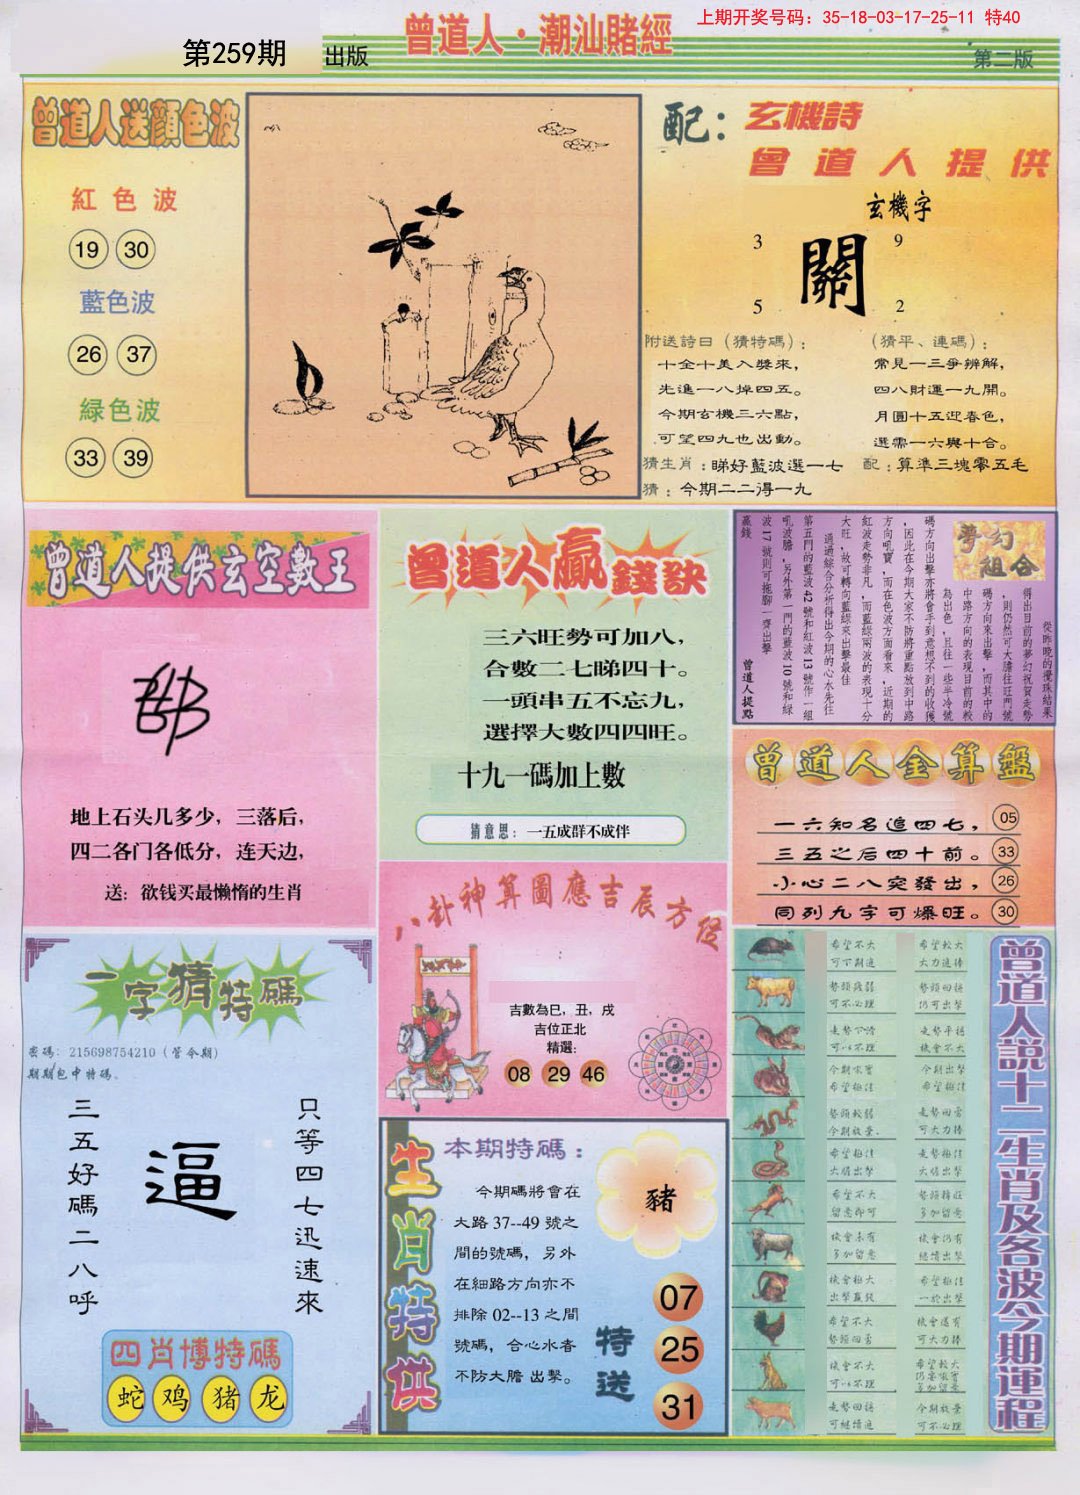 上期开奖号码：35-18-03-17-25-11 特40
第259期 出版
曾道人·潮汕賭經
第二版
曾道人送顔色波
紅色波
19 30
藍色波
26 37
緑色波
33 39
配：玄機詩
曾道人提供
玄機字
3 9
關
5 2
附送詩曰（猜特碼）：
十全十美入獎來，
先進一八掉四五。
今期玄機三六點，
可望四九也出動。
（猜平、連碼）：
常見一三爭辨解，
四八財運一九開。
月圓十五迎春色，
選需一六與十合。
猜生肖：睇好藍波選一七
配：算準三塊零五毛
猜：今期二二得一九
曾道人提供玄空數王
地上石头几多少，三落后，
四二各门各低分，连天边，
送：欲钱买最懒惰的生肖
曾道人贏錢訣
三六旺勢可加八，
合數二七睇四十。
一頭串五不忘九，
選擇大數四四旺。
十九一碼加上數
猜意思：一五成群不成伴
夢幻組合
從昨晚的攪珠結果
得出目前的夢幻祝賀走勢
，則仍然可大膽往旺門號
碼方向來出擊，而其中的
中路方向的表現目前的較
為出色，且往一些半冷號
碼方向出擊亦將會手到意想不到的收獲
，因此在今期大家不防將重點放到中路
方向吼實，而在色波方面看來，近期的
紅波走勢非凡，而藍緑兩波的表現十分
大旺，故可轉向藍緑來出擊最佳
通過綜合分析得出今期的心水先往
第五門的藍波42號和紅波13號作一組
吼波膽，另外第一門的藍波10號和緑
波17號則可拖腳一齊出擊
贏錢
曾道人提點
曾道人全算盤
一六知名追四七， 05
三五之后四十前。 33
小心二八突發出， 26
同列九字可爆旺。 30
八卦神算圖應吉辰方位
吉數為巳，丑，戌
吉位正北
精選：
08 29 46
一字猜特碼
密碼：215698754210（管令期）
期期包中特碼、
三五好碼二八呼
逼
只等四七迅速來
四肖博特碼
蛇 鸡 猪 龙
生肖特供
本期特碼：
今期碼將會在
大路 37--49 號之
間的號碼，另外
在細路方向亦不
排除 02--13 之間
號碼，合心水者
不防大膽出擊。
豬
特送
07
25
31
曾道人說十二生肖及各波今期運程
希望不大
希望較大
可大力捧
今期出擊
希望極佳
走勢極佳
大膽出擊
希望不大
留意即可
機會未有
多加留意
機會仍有
繼續出擊
機會極大
出擊贏錢
希望極佳
希望不大
機會還有
可大力捧
機會不大
希望較大
多加留意
可繼續追